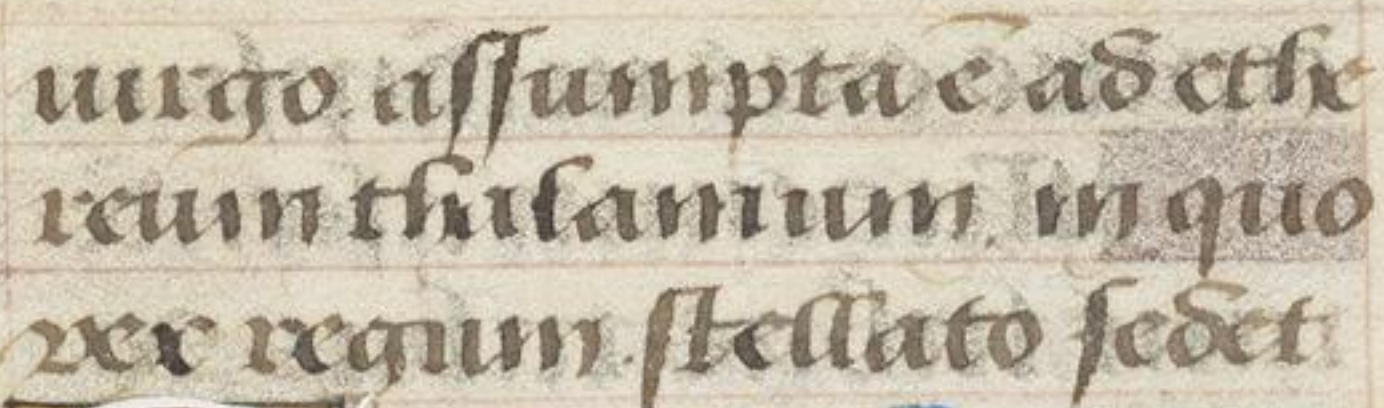 uirgo assumpta ē ad ethe
reum thalamum, in quo
rex regum stellato sedet